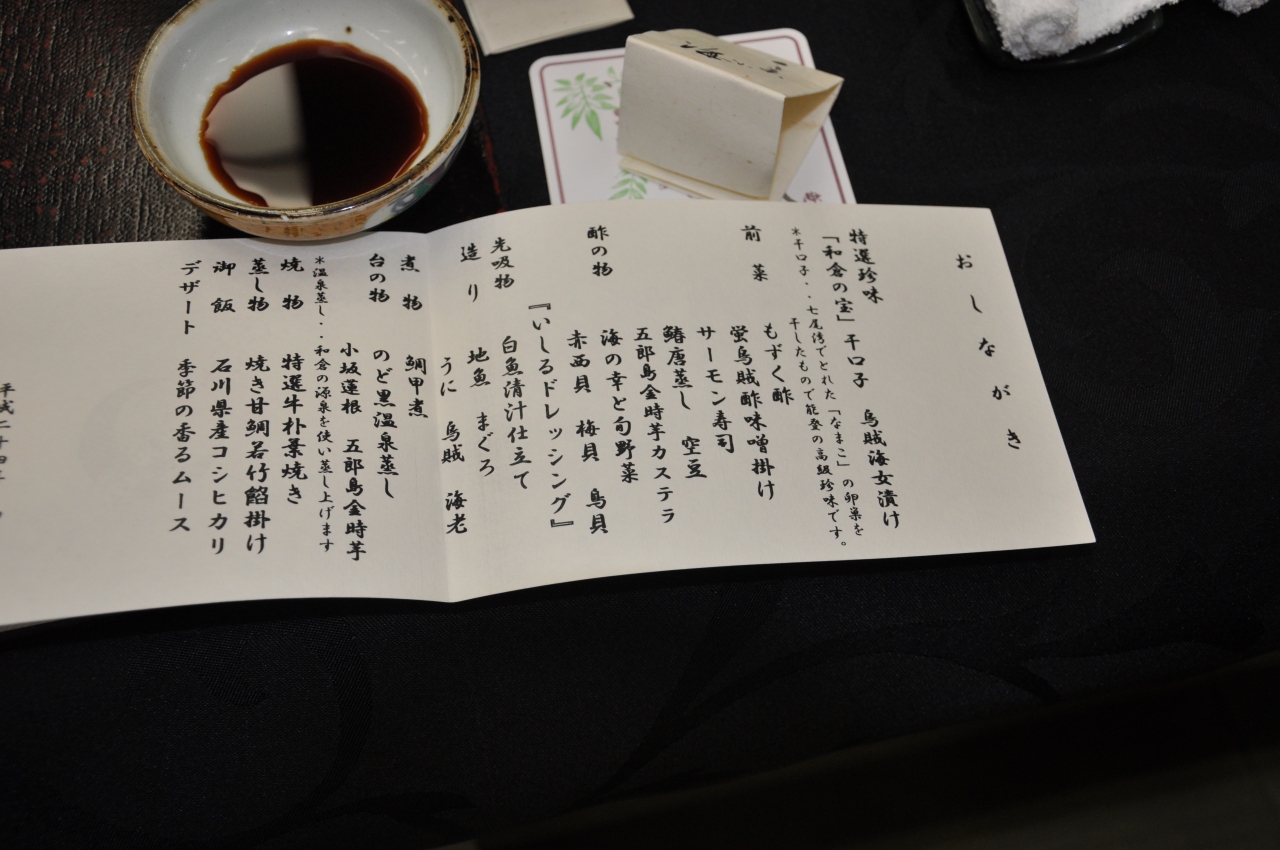 おしながき
特選珍味
「和倉の宝」干口子 烏賊海女漬け
*干口子・・七尾湾でとれた「なまこ」の卵巣を
干したもので能登の高級珍味です。
前菜 もずく酢
蛍烏賊酢味噌掛け
サーモン寿司
鰆唐蒸し 空豆
五郎島金時芋カステラ
酢の物 海の幸と旬野菜
赤西貝 梅貝 鳥貝
『いしるドレッシング』
先吸物 白魚清汁仕立て
造り 地魚 まぐろ
うに 烏賊 海老
煮物 鯛甲煮
台の物 のど黒温泉蒸し
小坂蓮根 五郎島金時芋
*温泉蒸し・・和倉の源泉を使い蒸し上げます
焼物 特選牛朴葉焼き
蒸し物 焼き甘鯛若竹餡掛け
御飯 石川県産コシヒカリ
デザート 季節の香るムース
平成二十四年